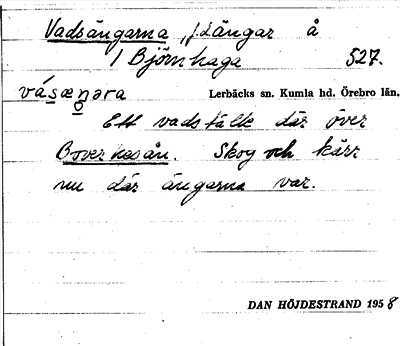 Vadsängarna, f.d. ängar å
1 Björnhaga 527.
vásæŋəra Lerbäcks sn. Kumla hd. Örebro län.
Ett vadställe där över
Boverkesån. Skog och kärr
nu där ängarna var.
DAN HÖJDESTRAND 1958